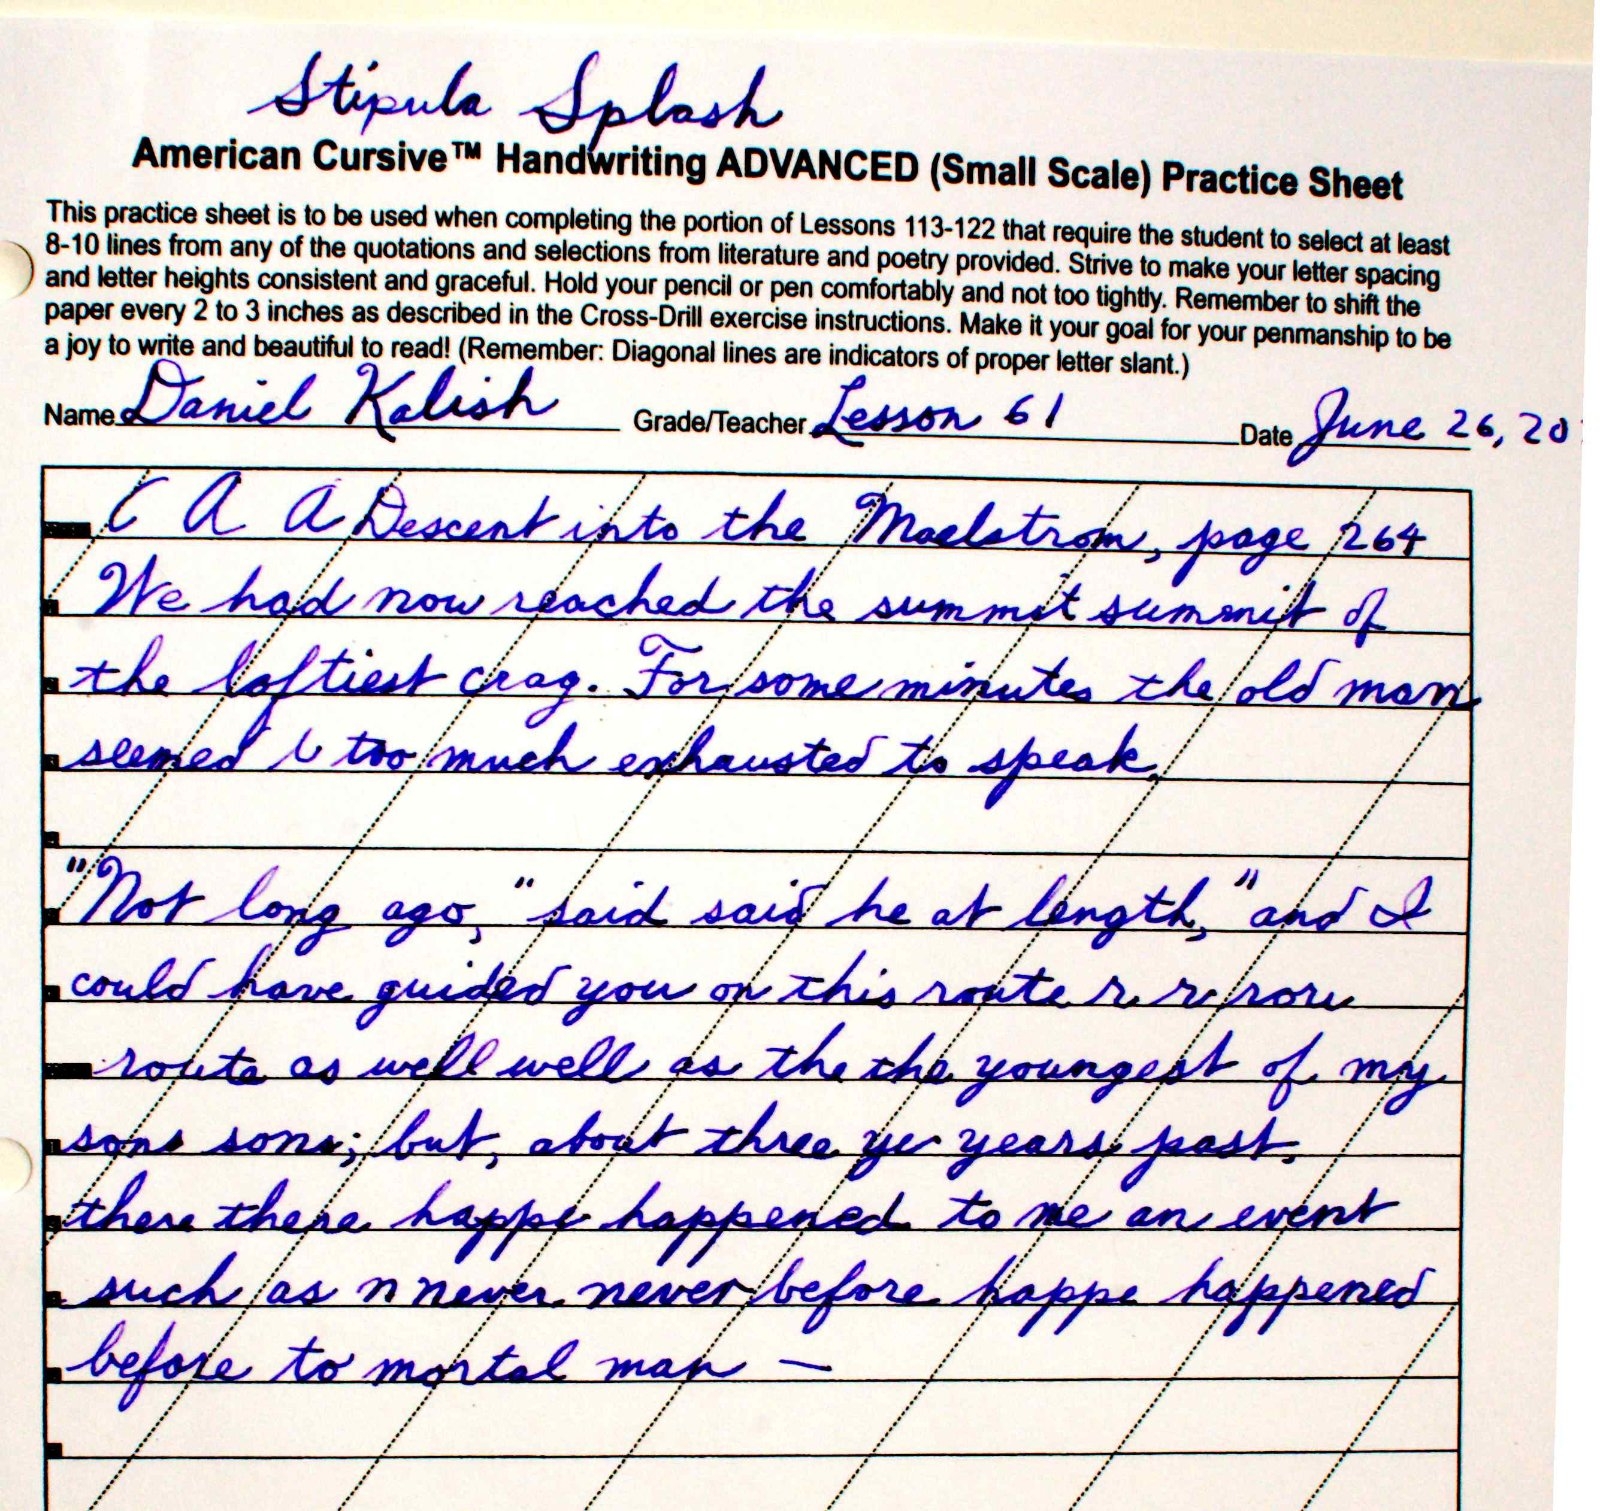 Stipula Splash
American Cursive™ Handwriting ADVANCED (Small Scale) Practice Sheet
This practice sheet is to be used when completing the portion of Lessons 113-122 that require the student to select at least
8-10 lines from any of the quotations and selections from literature and poetry provided. Strive to make your letter spacing
and letter heights consistent and graceful. Hold your pencil or pen comfortably and not too tightly. Remember to shift the
paper every 2 to 3 inches as described in the Cross-Drill exercise instructions. Make it your goal for your penmanship to be
a joy to write and beautiful to read! (Remember: Diagonal lines are indicators of proper letter slant.)
Name Daniel Kalish Grade/Teacher Lesson 61 Date June 26, 20
C A A Descent into the Maelstrom, page 264
We had now reached the summit summit of
the loftiest crag. For some minutes the old man
seemed too much exhausted to speak.
"Not long ago," said said he at length, "and I
could have guided you on this route r r rou
route as well well as the the youngest of my
sons sons; but, about three ye years past,
there there happe happened to me an event
such as n never never before happe happened
before to mortal man —